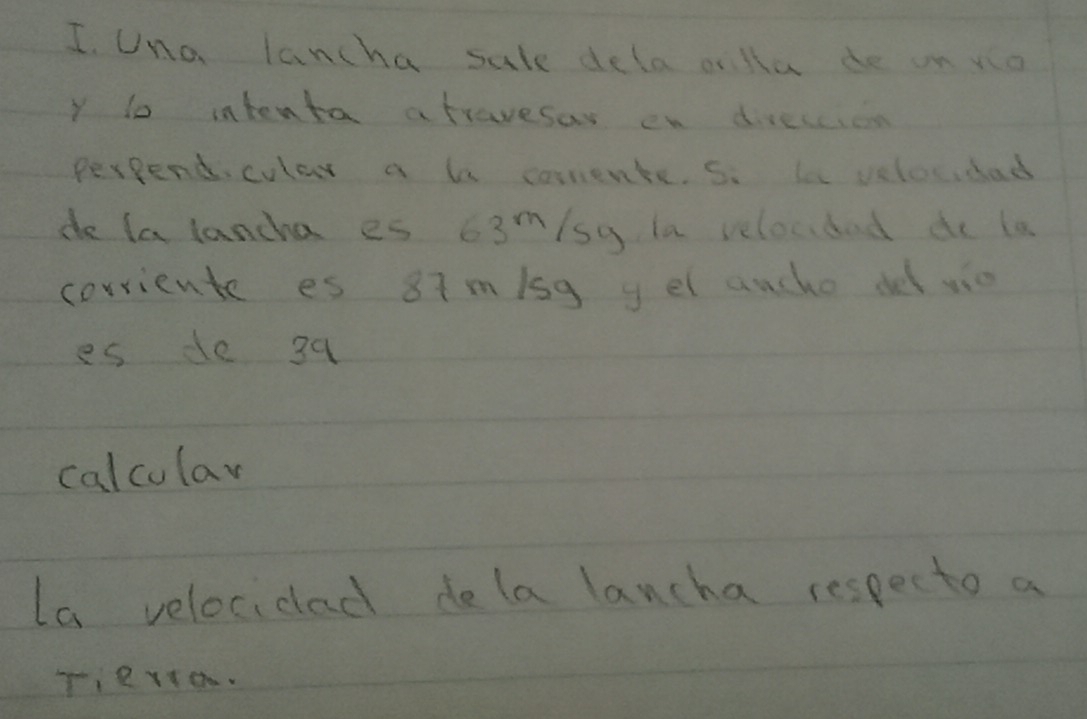 I. Una lancha sale dela orilla de un río
y lo intenta atravesar en dirección
perpendicular a la corriente. Si la velocidad
de la lancha es 63 m/sg la velocidad de la
corriente es 87 m/sg y el ancho del río
es de 39
calcular
La velocidad de la lancha respecto a
Tierra.